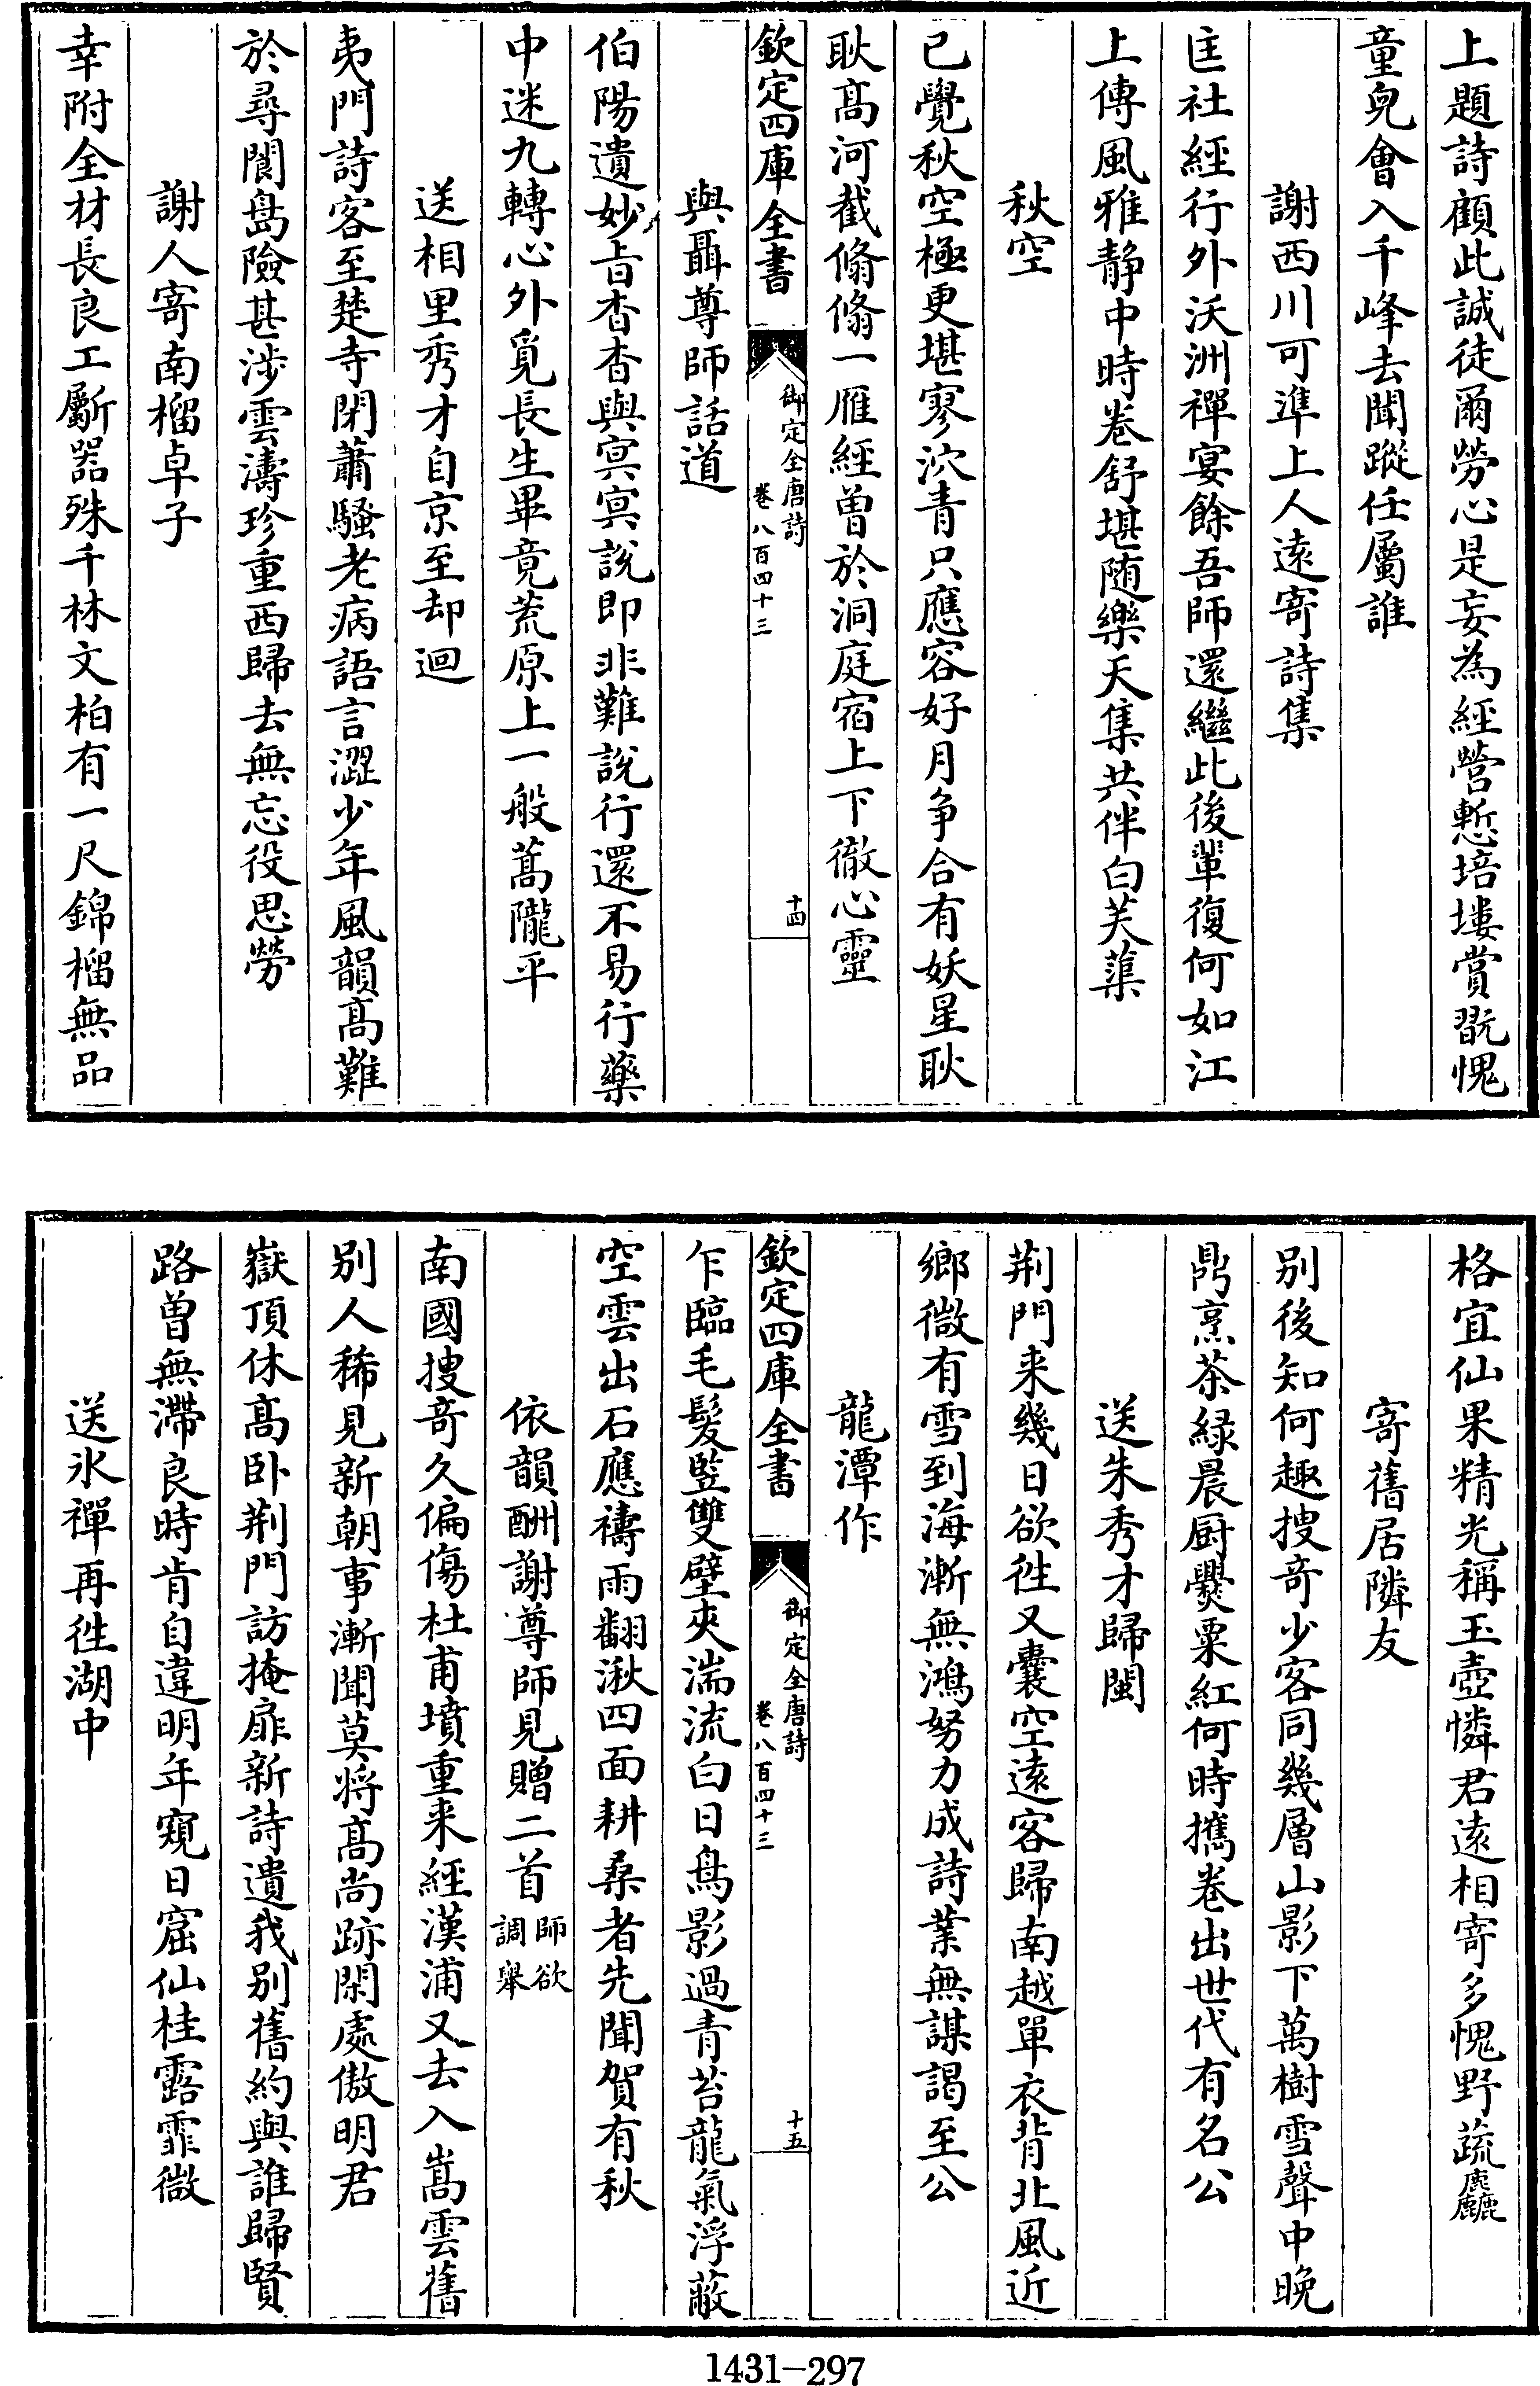 上題詩顧此誠徒爾勞心是妄為經營慙培塿賞翫愧
童兒會入千峰去聞蹤任屬誰
謝西川可準上人遠寄詩集
匡社經行外沃洲禪宴餘吾師還繼此後輩復何如江
上傳風雅靜中時卷舒堪隨樂天集共伴白芙蕖
秋空
已覺秋空極更堪寥泬青只應容好月爭合有妖星耿
耿高河截翛翛一雁經曾於洞庭宿上下徹心靈
欽定四庫全書
御定全唐詩
卷八百四十三
十四
與聶尊師話道
伯陽遺妙旨杳杳與冥冥說即非難說行還不易行藥
中迷九轉心外覓長生畢竟荒原上一般蒿隴平
送相里秀才自京至却迴
夷門詩客至楚寺閉蕭騷老病語言澀少年風韻高難
於尋閬島險甚涉雲濤珍重西歸去無忘役思勞
謝人寄南榴卓子
幸附全材長良工斲器殊千林文柏有一尺錦榴無品
格宜仙果精光稱玉壺憐君遠相寄多愧野蔬麤
寄舊居隣友
别後知何趣搜奇少客同幾層山影下萬樹雪聲中晚
鼎烹茶綠晨厨爨粟紅何時攜卷出世代有名公
送朱秀才歸閩
荆門来幾日欲徃又囊空遠客歸南越單衣背北風近
鄉微有雪到海漸無鴻努力成詩業無謀謁至公
龍潭作
欽定四庫全書
御定全唐詩
卷八百四十三
十五
乍臨毛髮豎雙壁夾湍流白日鳥影過青苔龍氣浮蔽
空雲出石應禱雨翻湫四面耕桑者先聞賀有秋
依韻酬謝尊師見贈二首師欲調舉
南國搜奇久偏傷杜甫墳重来經漢浦又去入嵩雲舊
别人稀見新朝事漸聞莫將高尚跡閑處傲明君
嶽頂休高卧荆門訪掩扉新詩遺我别舊約與誰歸賢
路曾無滯良時肯自違明年窺日窟仙桂露霏微
送氷禪再徃湖中
1431-297